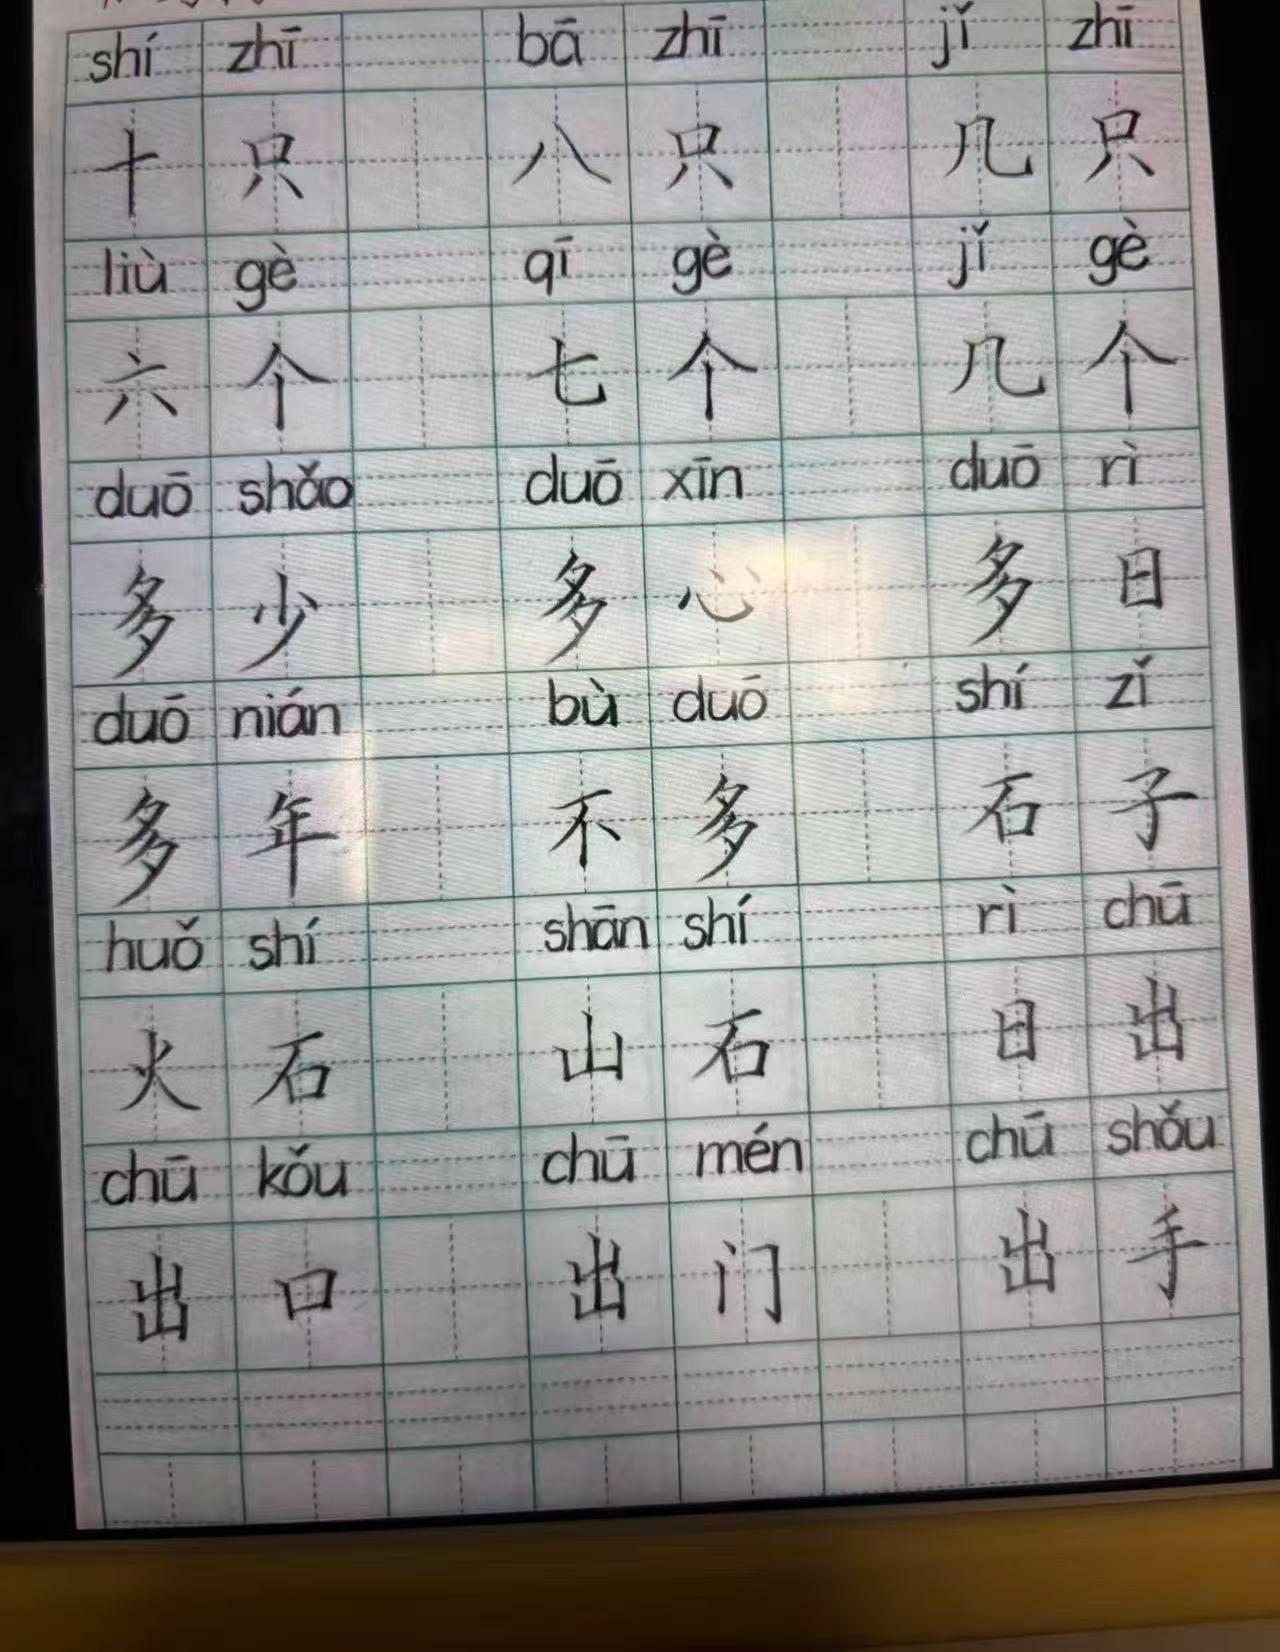 shí zhī bā zhī jǐ zhī
十只 八只 几只
liù gè qī gè jǐ gè
六个 七个 几个
duō shǎo duō xīn duō rì
多少 多心 多日
duō nián bù duō shí zǐ
多年 不多 石子
huǒ shí shān shí rì chū
火石 山石 日出
chū kǒu chū mén chū shǒu
出口 出门 出手